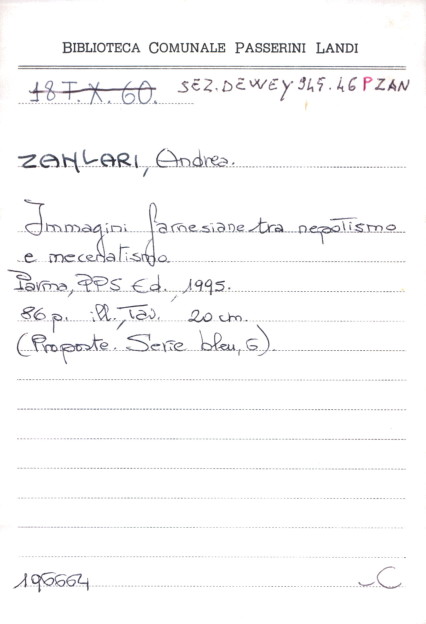 BIBLIOTECA COMUNALE PASSERINI LANDI
18 I. X. 60. SEZ. DEWEY 945.46 P ZAN
ZANLARI, Andrea.
Immagini farnesiane tra nepotismo
e mecenatismo.
Parma, PPS Ed., 1995.
86 p. ill., Tav. 20 cm.
(Proposte. Serie bleu, 6).
196664
C